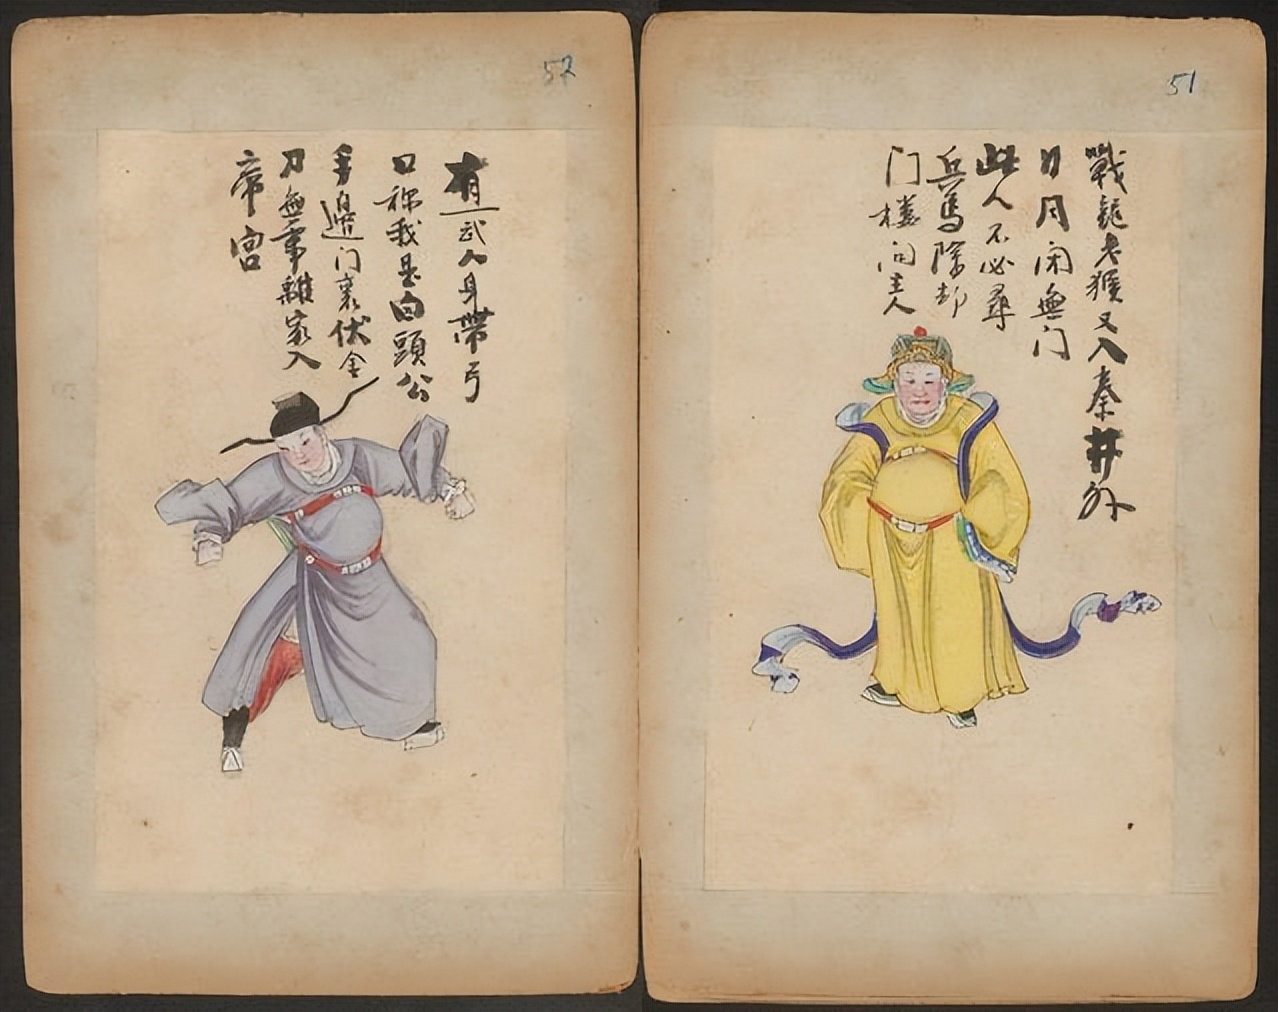 51
戰龍老猴又入秦井外
日月閑無门
此人不必尋
兵馬除却
门樓问主人
52
有一武人身帶弓
口称我是白頭公
手邊门裏伏金
刀無事離家入
帝宮